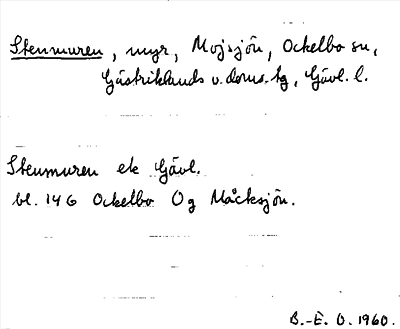 Stenmuren, myr, Mojsjön, Ockelbo sn,
Gästriklands v. doms.hg, Gävl. l.
Stenmuren ek Gävl.
bl. 146 Ockelbo Og Måcksjön.
B.-E. O. 1960.